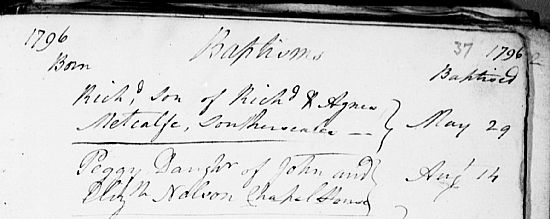 1796 Baptisms 37 1796
Born Baptised
Richd, Son of Richd & Agnes
Metcalfe, Southerscales May 29
Peggy Daughr of John and
Elizth Nelson Chapel House Augt 14